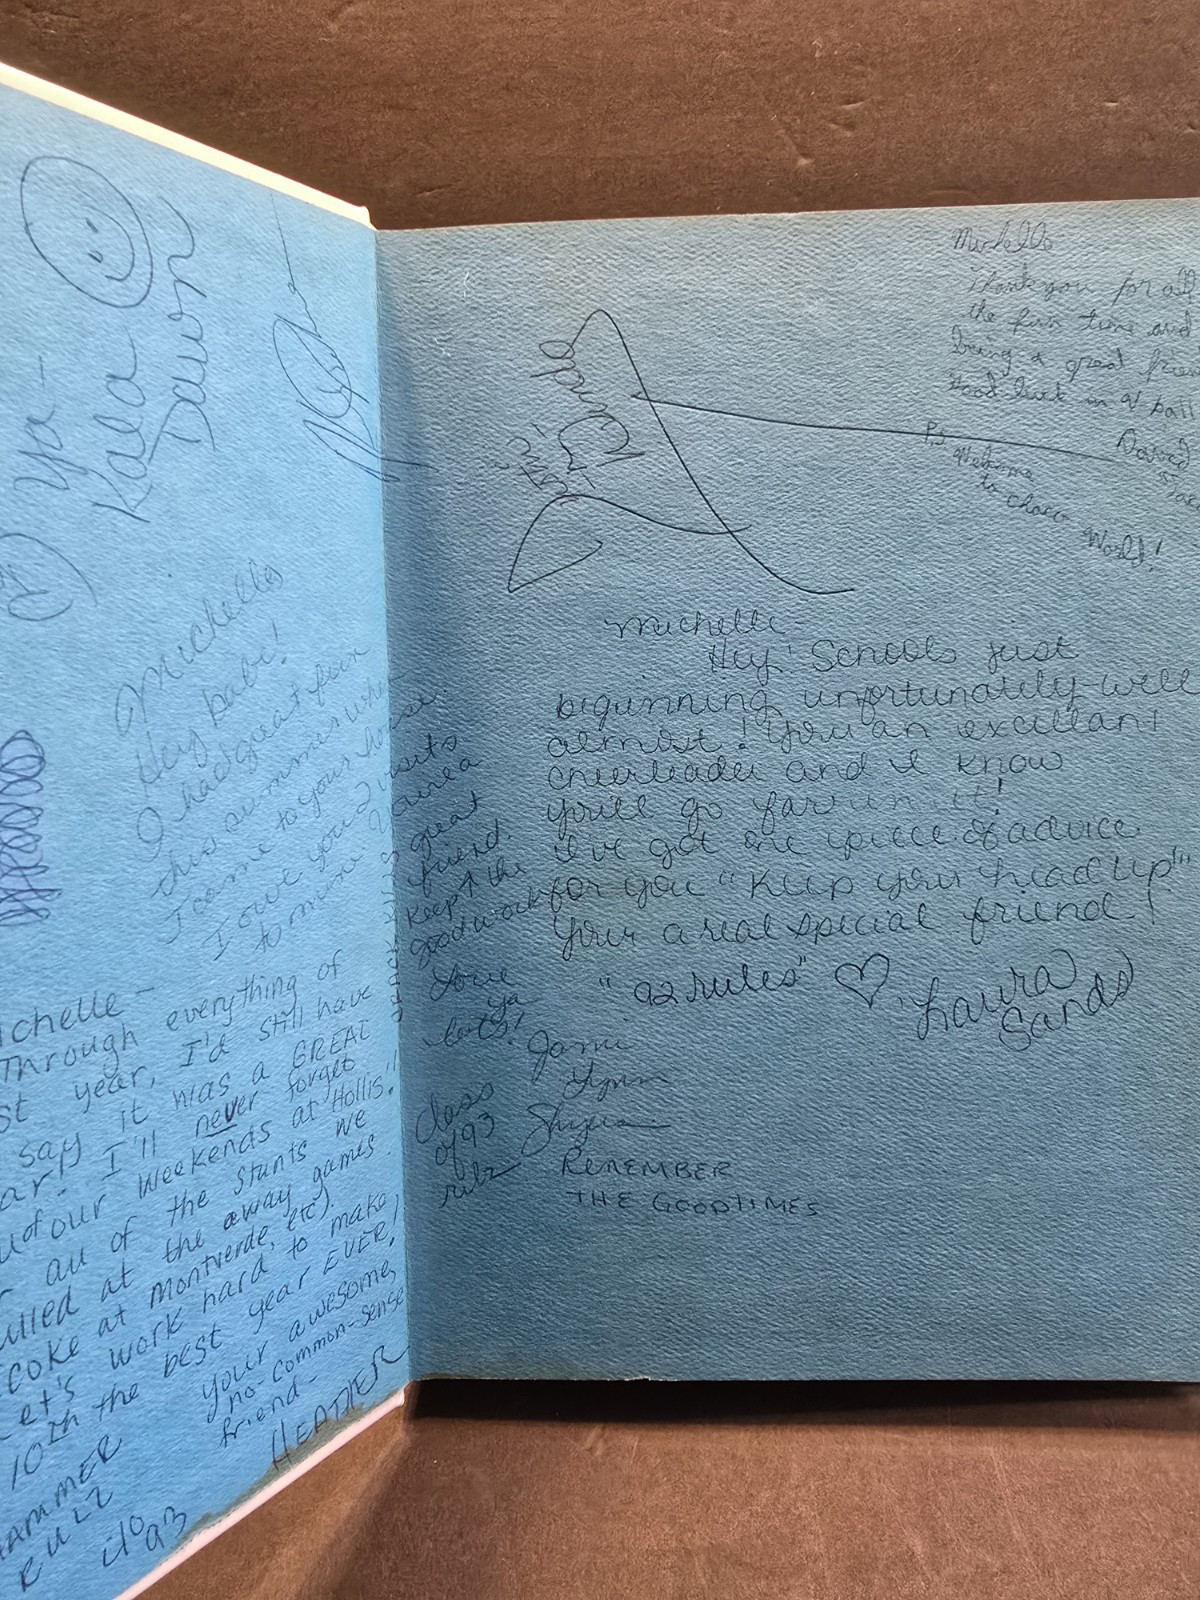 Ya -
Kala
Dawn
Michelle,
Hey babe!
I had great fun
this summer when
I came to your house.
I owe you 2 visits
to mine. Your a
great
friend.
Keep ↑ the
good work
Love
ya
lots!
Jami
Lynn
Class
of 93
rulz
ichelle -
Through everything of
st year, I'd still have
say it was a GREAT
ar! I'll never forget
of our weekends at Hollis'!
all of the stunts we
ulled at the away games
coke at Montverde, etc).
et's work hard to make
10th the best year EVER!
Your awesome,
no-common-sense
friend-
HEATHER
AMMER
RULZ
c/o 93
Michelle
Thank you for all
the fun time and
being a great frien
Good luck in
David
P.S. Welcome
to chaco World!
Cindy
Michelle -
Hey! Schools just
beginning unfortunately-well
almost! You an excellant
cheerleader and I know
you'll go far in it!
I've got one piece of advice
for you "Keep you head up"
Your a real special friend!
"92 rules" ♡ Laura
Sands
REMEMBER
THE GOODTIMES